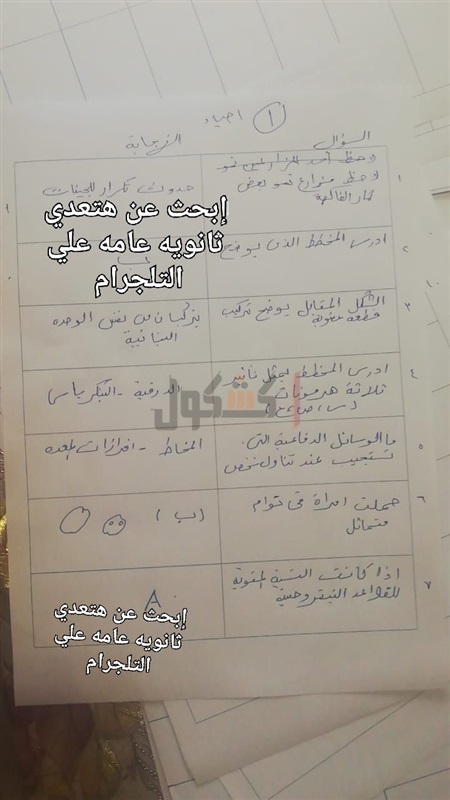 احياء ①
السؤال
الإجابة
١
لاحظ أحد المزارعين نمو
لاحظ مزارع نمو بعض
ثمار الفاكهة
حدوث تكرار للجينات
إبحث عن هتعدي
ثانويه عامه علي
التلجرام
٢
ادرس المخطط الذى يوضح
٣
الشكل المقابل يوضح تركيب
قطعة عضوية
يتركبان من نفس الوحده
البنائية
٤
ادرس المخطط يمثل تأثير
ثلاثة هرمونات
(س، ص، ع)
الدرقية - البنكرياس
كشكول
٥
ما الوسائل الدفاعية التى
تستجيب عند تناول شخص
المخاط - افرازات المعده
٦
حملت امرأة فى توأم
متماثل
(ب)
٧
اذا كانت النسبة المئوية
للقواعد النيتروجينية
A
إبحث عن هتعدي
ثانويه عامه علي
التلجرام